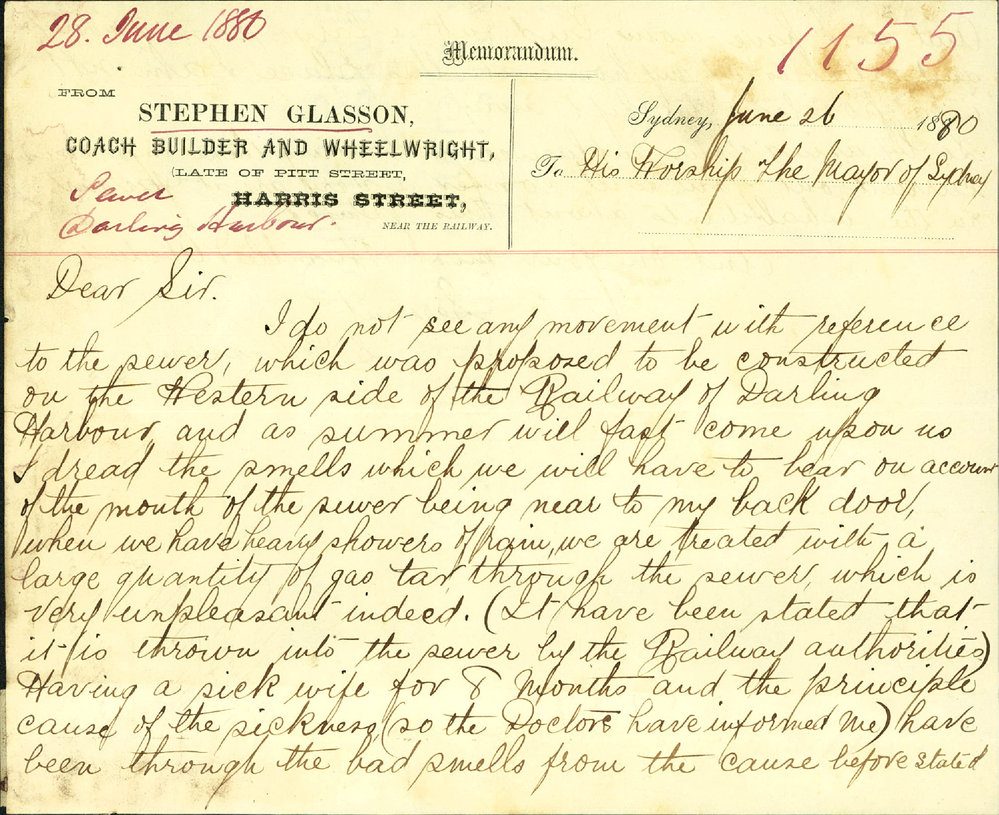 28. June 1880
1155
Memorandum.
FROM
STEPHEN GLASSON,
COACH BUILDER AND WHEELWRIGHT,
(LATE OF PITT STREET,
HARRIS STREET,
NEAR THE RAILWAY.
Sewer
Darling Harbour.
Sydney, June 26 1880
To His Worship The Mayor of Sydney
Dear Sir.
I do not see any movement with reference
to the sewer, which was proposed to be constructed
on the Western side of the Railway of Darling
Harbour, and as summer will fast come upon us
I dread the smells which we will have to bear on account
of the mouth of the sewer being near to my back door,
when we have heavy showers of rain, we are treated with a
large quantity of gas tar through the sewer, which is
very unpleasant indeed. (It have been stated that
it is thrown into the sewer by the Railway authorities)
Having a sick wife for 8 Months and the principle
cause of the sickness (so the Doctors have informed me) have
been through the bad smells from the cause before stated